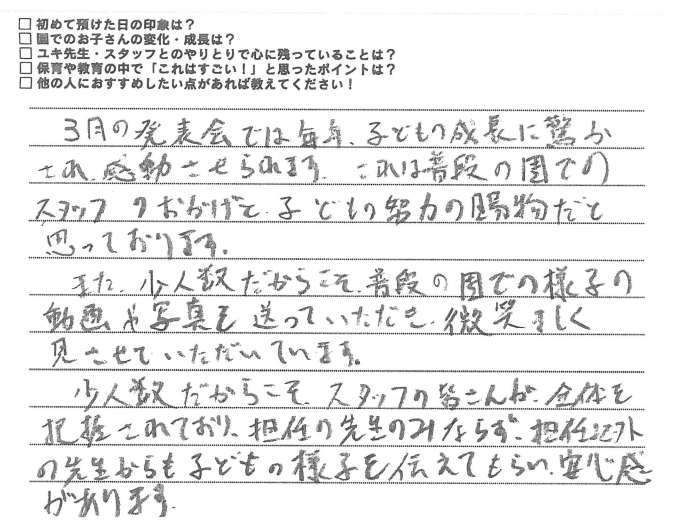 □ 初めて預けた日の印象は？
□ 園でのお子さんの変化・成長は？
□ ユキ先生・スタッフとのやりとりで心に残っていることは？
□ 保育や教育の中で「これはすごい！」と思ったポイントは？
□ 他の人におすすめしたい点があれば教えてください！
3月の発表会では毎年、子どもの成長に驚か
され、感動させられます。これは普段の園での
スタッフのおかげと、子どもの努力の賜物だと
思っております。
また、少人数だからこそ、普段の園での様子の
動画や写真を送っていただき、微笑ましく
見させていただいています。
少人数だからこそ、スタッフの皆さんが、全体を
把握されており、担任の先生のみならず、担任以外
の先生からも子どもの様子を伝えてもらい、安心感
があります。